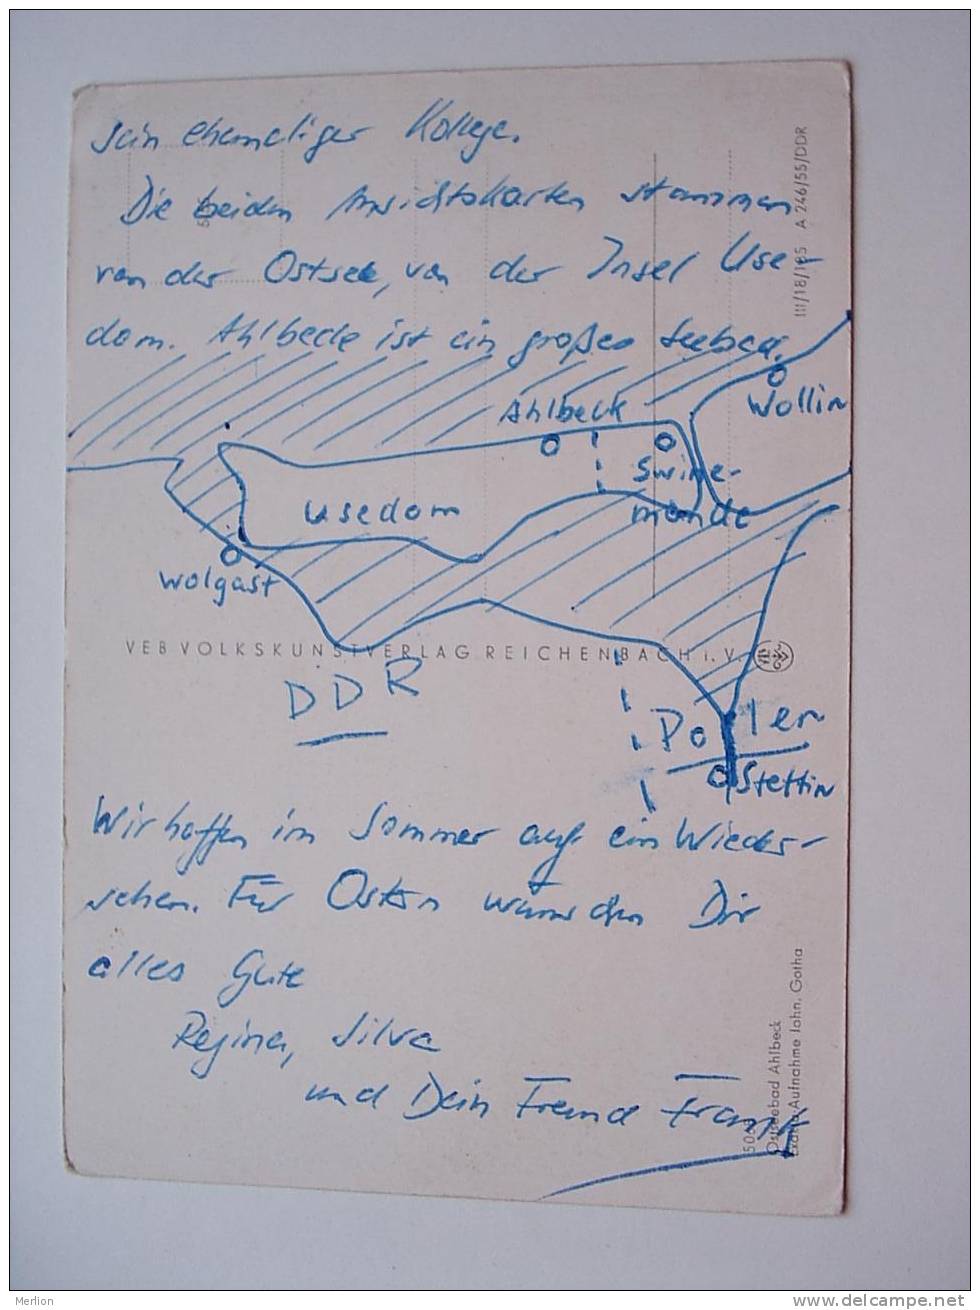 sein ehemaliger Kollege.
Die beiden Ansichtskarten stammen
von der Ostsee, von der Insel Use-
dom. Ahlbeck ist ein großes Seebad.
Ahlbeck
Wollin
Swine-
münde
Usedom
Wolgast
VEB VOLKSKUNSTVERLAG REICHENBACH i. V.
DDR
Polen
Stettin
Wir hoffen im Sommer auf ein Wieder-
sehen. Für Ostern wünschen Dir
alles Gute
Regina, Silva
und Dein Freund Frank
III/18/185 A 246/55/DDR
Ostseebad Ahlbeck
Aufnahme John, Gotha
Merlion
delcampe.net